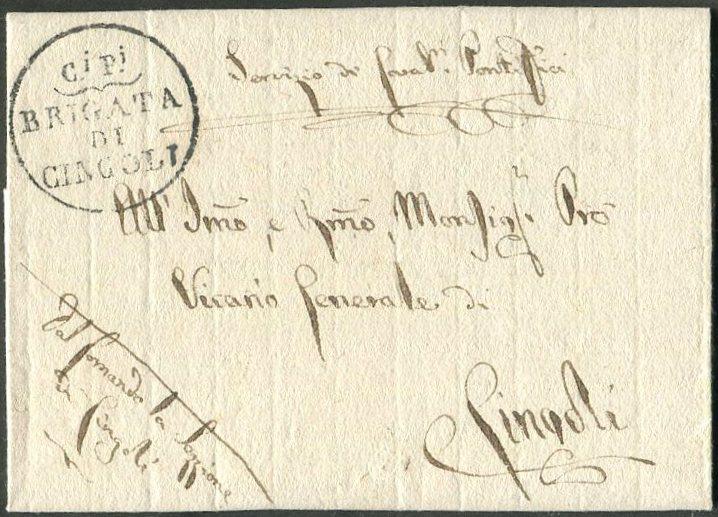 Ci Pi
BRIGATA
DI
CINGOLI
Servizio di Carab.i Pontificj
All' Immo, e Rmmo, Monsigr. Pro
Vicario Generale di
Cingoli
Dal Comando la Sezione
di Cingoli